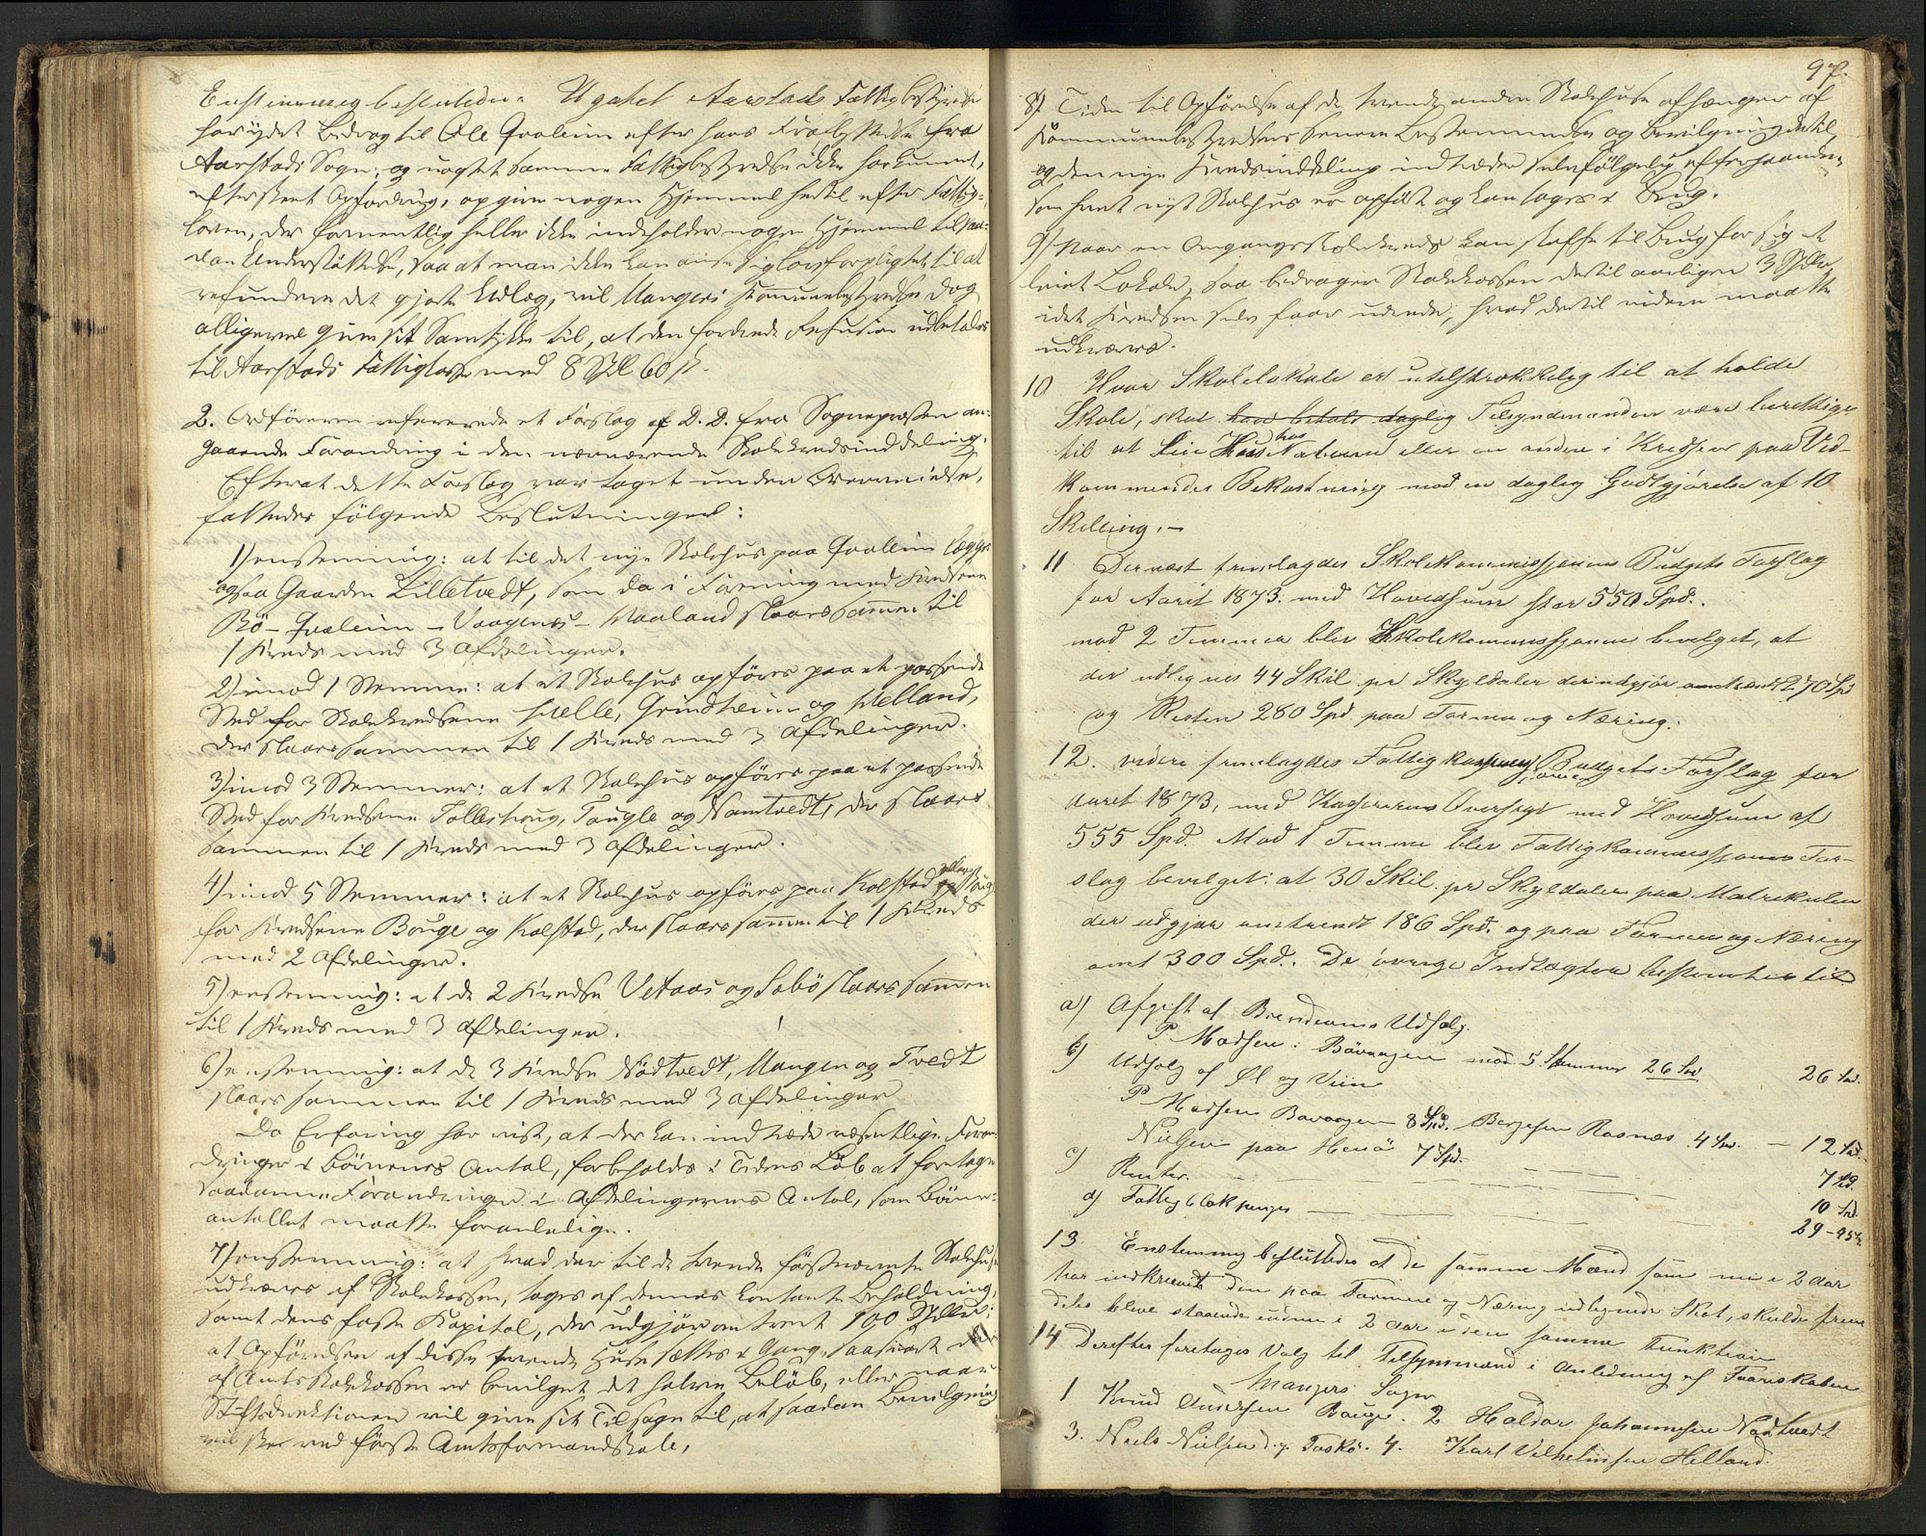 Enstemmig besluttedes: Uagtet Aarstads Fattigbestyrelse
har ydet Bidrag til Ole Qvalem efter hans Fraflyttelse fra
Aarstads Sogn, og uagtet samme Fattigbestyrelse ikke har kunnet,
efter skeet Opfordring, opgive nogen Hjemmel hertil efter Fattig-
loven, der formentlig heller ikke indeholder nogen Hjemmel til saa-
dan Understøttelse, saa at man ikke kan anse sig lovforpligtet til at
refundere det gjorte Udlæg, vil Mangers Kommunebestyrelse dog
alligevel give sit Samtykke til, at den fordrede Refusion udbetales
til Aarstads Fattigkasse med 8 Spd 60 ß.
2. Ordføreren refererede et Forslag af D.D. fra Sognepræsten an-
gaaende Forandring i den nærværende Skolekredsinddeling.
Efterat dette Forslag var taget under Overveielse,
fattedes følgende Beslutninger:
1) enstemmig: at til det nye Skolehus paa Qvalem lægges
ogsaa Gaarden Lilletvedt, som da i Forening med Kredsene
Bø - Qvalem - Vaagenes - Marland slaaes sammen til
1 Kreds med 3 Afdelinger.
2) imod 1 Stemme: at et Skolehus opføres paa et passende
Sted for Skolekredsene Helle, Grindheim og Helland,
der slaaes sammen til 1 Kreds med 3 Afdelinger.
3) imod 3 Stemmer: at et Skolehus opføres paa et passende
Sted for Kredsene Tolleshoug, Tougle og Namtvedt, der slaaes
sammen til 1 Kreds med 3 Afdelinger.
4) imod 5 Stemmer: at et Skolehus opføres paa Kolstad eller Bouge
for Kredsene Bouge og Kolstad, der slaaes sammen til 1 Kreds
med 2 Afdelinger.
5) enstemmig: at de 2 Kredse Vetaas og Sæbø slaaes sammen
til 1 Kreds med 3 Afdelinger.
6) enstemmig: at de 3 Kredse Nødtvedt, Manger og Tvedt
slaaes sammen til 1 Kreds med 3 Afdelinger
Da Erfaring har vist, at der kan indtræde væsentlige Foran-
dringer i Børnenes Antal, forbeholdes i Tidens Løb at foretage
saadanne Forandringer i Afdelingernes Antal, som Børne-
antallet maatte foranledige.
7) enstemmig: at hvad der til de tvende førstnævnte Skolehuse
udkræves af Skolekassen, tages af dennes kontante Beholdning,
samt dens faste Kapital, der udgjør omtrent 100 Spdlr;
at Opførelsen af disse tvende Huse sættes i Gang, saasnart der
af Amtsskolekassen er bevilget det halve Beløb, eller naar
Stiftsdirektionen vil give sit Tilsagn til, at saadan Bevilgning
vil ske ved første Amtsformandskab.
97.
8) Tiden til Opførelse af de tvende andre Skolehuse afhænger af
Kommunebestyrelsens senere Bestemmelse og Bevilgning dertil,
og den nye Kredsinddeling indtræder selvfølgelig efterhaanden
som hvert nyt Skolehus er opført og kan tages i Brug.
9) Naar en Omgangsskolekreds kan skaffe til Brug for sig et
leiet Lokale, saa bidrager Skolekassen dertil aarligen 3 Spdlr,
idet Kredsen selv faar udrede, hvad dertil videre maatte
udkræves.
10 Hvor Skolelokale er utilstrækkelig til at holde
Skole, skal Tilsynsmanden være berettiget
til at leie Hus hos Naboerne eller en anden i Kredsen paa Ved-
kommendes Bekostning mod en daglig Godtgjørelse af 10
Skilling. -
11 Dernæst fremlagdes Skolekommissjonens Budgets Forslag
for Aaret 1873. med Hovedsum stor 550 Spd.
mod 2 Stemmer blev Skolekommissjonen bevilget, at
der udlignes 44 Skil. pr Skyldaler der udgjør omtrent 270 Spd
og Resten 280 Spd paa Formue og Næring.
12. videre fremlagdes Fattigkommissjonens Budgets-Forslag for
Aaret 1873, med Kassererens Oversigt med Hovedsum af
555 Spd. Mod 1 Stemme blev Fattigkommissjonens For-
slag bevilget: at 30 Skil. pr Skyldaler paa Matrikulen
der udgjør omtrendt 186 Spd. og paa Formue og Næring
omt 300 Spd. De øvrige Indtægter bestemtes til
a) Afgift af Brendeviins Udsalg.
P. Madsen i Bøvaagen mod 5 Stemmer 26 Spd 26 Spd.
b) Udsalg af Øl og Viin
P Madsen Bøvaagen 8 Spd. Berje Rosnæs 4 Spd. - 12 Spd.
Nielsen paa Hernø 7 Spd. 7 Spd.
c) Renter 10 Spd.
d) Fattigblokpenge 29 - 95 ß
13. Enstemmig besluttedes at de samme Mænd som nu i 2 Aar
har indkrævet den paa Formue og Næring udlignede Skat, skulde frem-
deles blive staaende endnu i 2 Aar i den samme Funktion
14 Derefter foretages Valg til Tilsynsmænd i Anledning af
Mangers Sogn
1 Knud Andersen Bouge. 2 Haldor Johannesen Nødtvedt
3. Niels Nielsen Toskø. 4. Karl Vilhelmsen Helland.